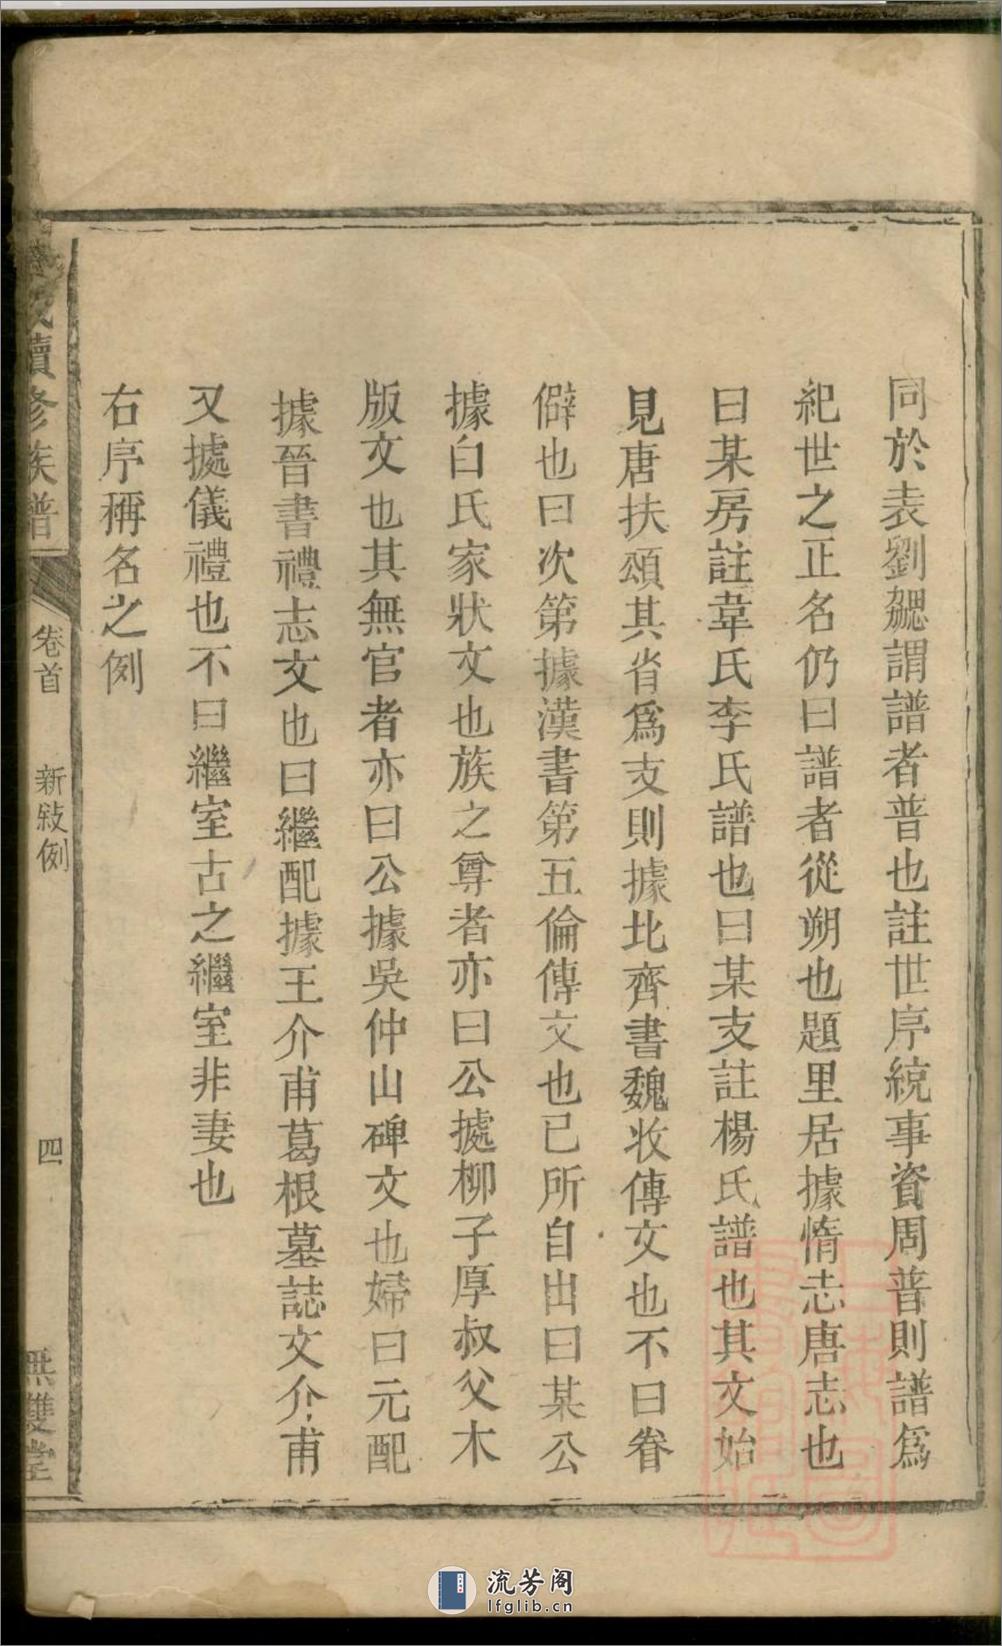 同於表劉勰謂譜者普也註世序統事資周普則譜爲
紀世之正名仍曰譜者從朔也題里居據惰志唐志也
曰某房註韋氏李氏譜也曰某支註楊氏譜也其文始
見唐扶頌其省爲支則據北齊書魏收傳文也不曰眷
僻也曰次第據漢書第五倫傳文也已所自出曰某公
據白氏家狀文也族之尊者亦曰公據柳子厚叔父木
版文也其無官者亦曰公據吳仲山碑文也婦曰元配
據晉書禮志文也曰繼配據王介甫葛根墓誌文介甫
又據儀禮也不曰繼室古之繼室非妻也
右序稱名之例
氏續修族譜
卷首
新敍例
四
無雙堂
流芳阁
lfglib.cn